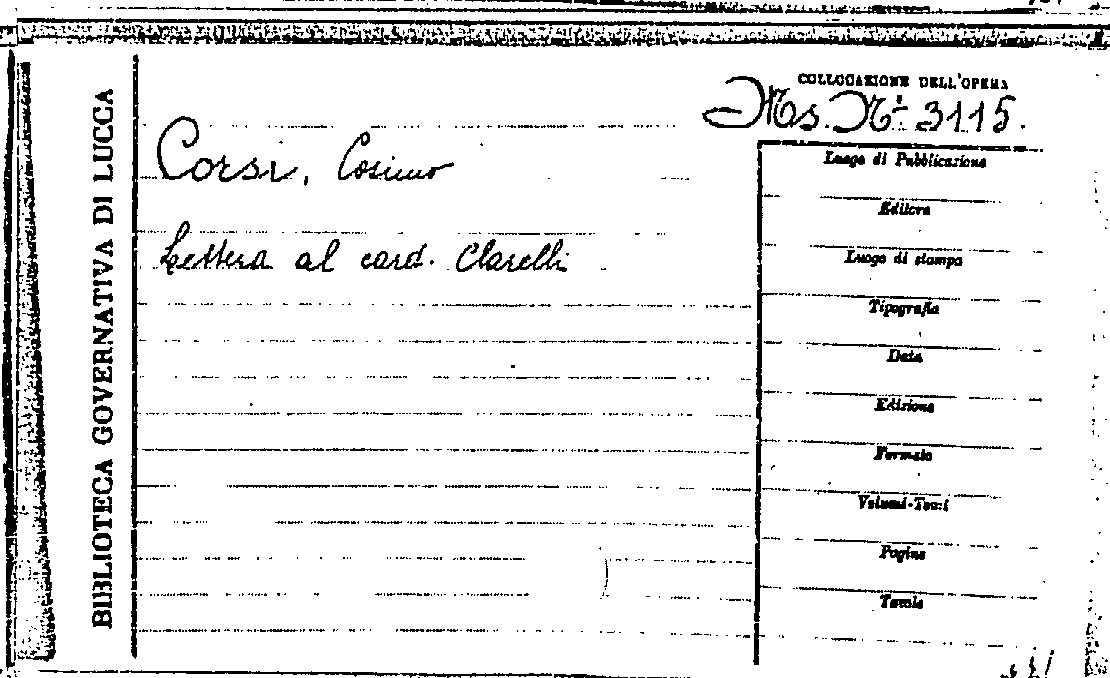 BIBLIOTECA GOVERNATIVA DI LUCCA
COLLOCAZIONE DELL'OPERA
Ms. N.° 3115.
Corsi, Cosimo
Lettera al card. Clarelli
Luogo di Pubblicazione
Editore
Luogo di stampa
Tipografia
Data
Edizione
Formato
Volumi-Tomi
Pagine
Tavole